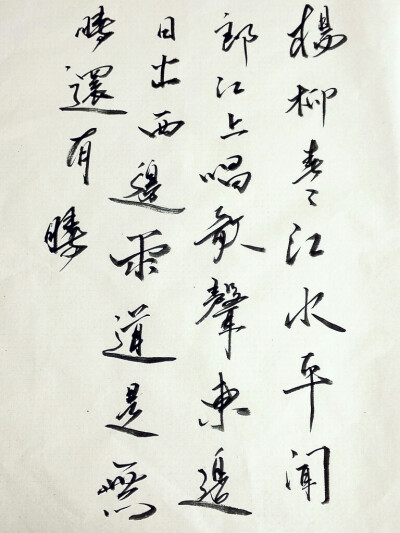 楊柳青々江水平聞
郎江上唱歌聲東邊
日出西邊雨道是無
晴還有晴